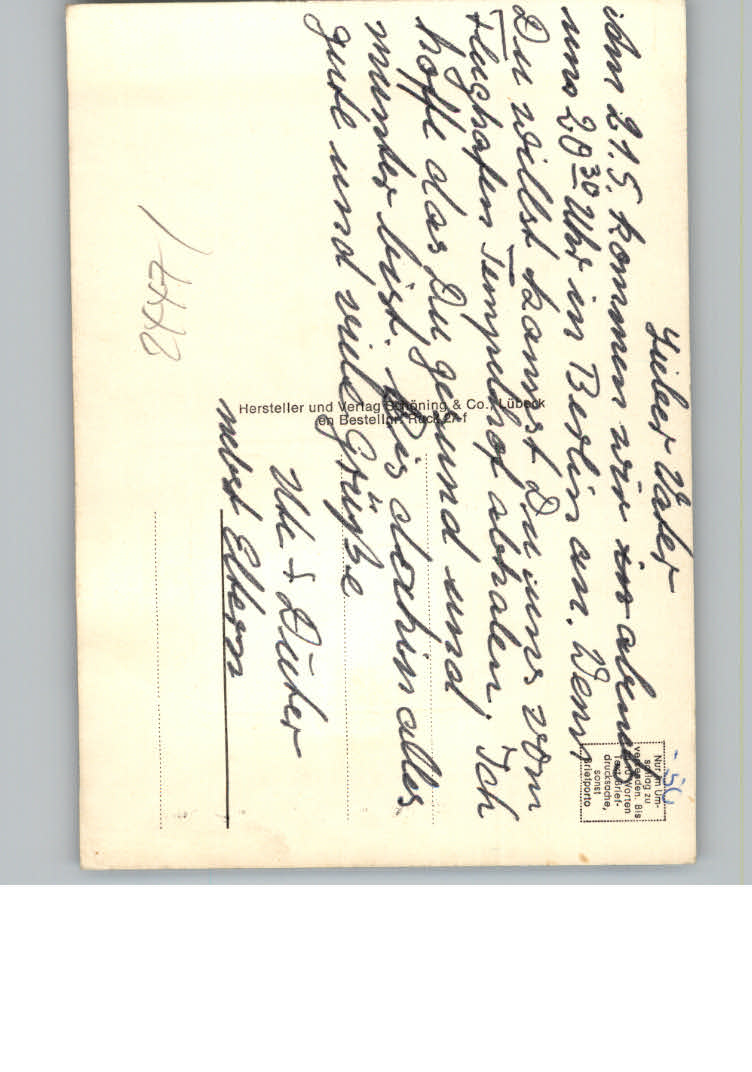 Lieber Vater
Am 21.5. kommen wir abends
um 20³⁰ Uhr in Berlin an. Wenn
Du willst kannst Du uns vom
Flughafen Tempelhof abholen. Ich
hoffe das Du gesund und
munter bist. Bis dahin alles
gute und viele Grüße
Ute + Dieter
nebst Eltern
Hersteller und Verlag Schöning & Co., Lübeck
Bestellnr. Rück 2A-f
Nur im Um-
schlag zu
versenden. Bis
Worten
Brief-
drucksache,
sonst
Briefporto
-,50
2448/